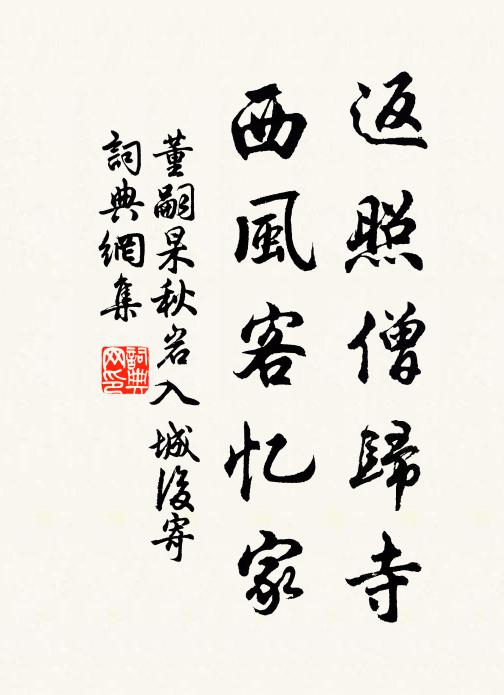 返照僧歸寺
西風客忆家
董嗣杲秋岩入城後寄
詞典網集
詞典网印